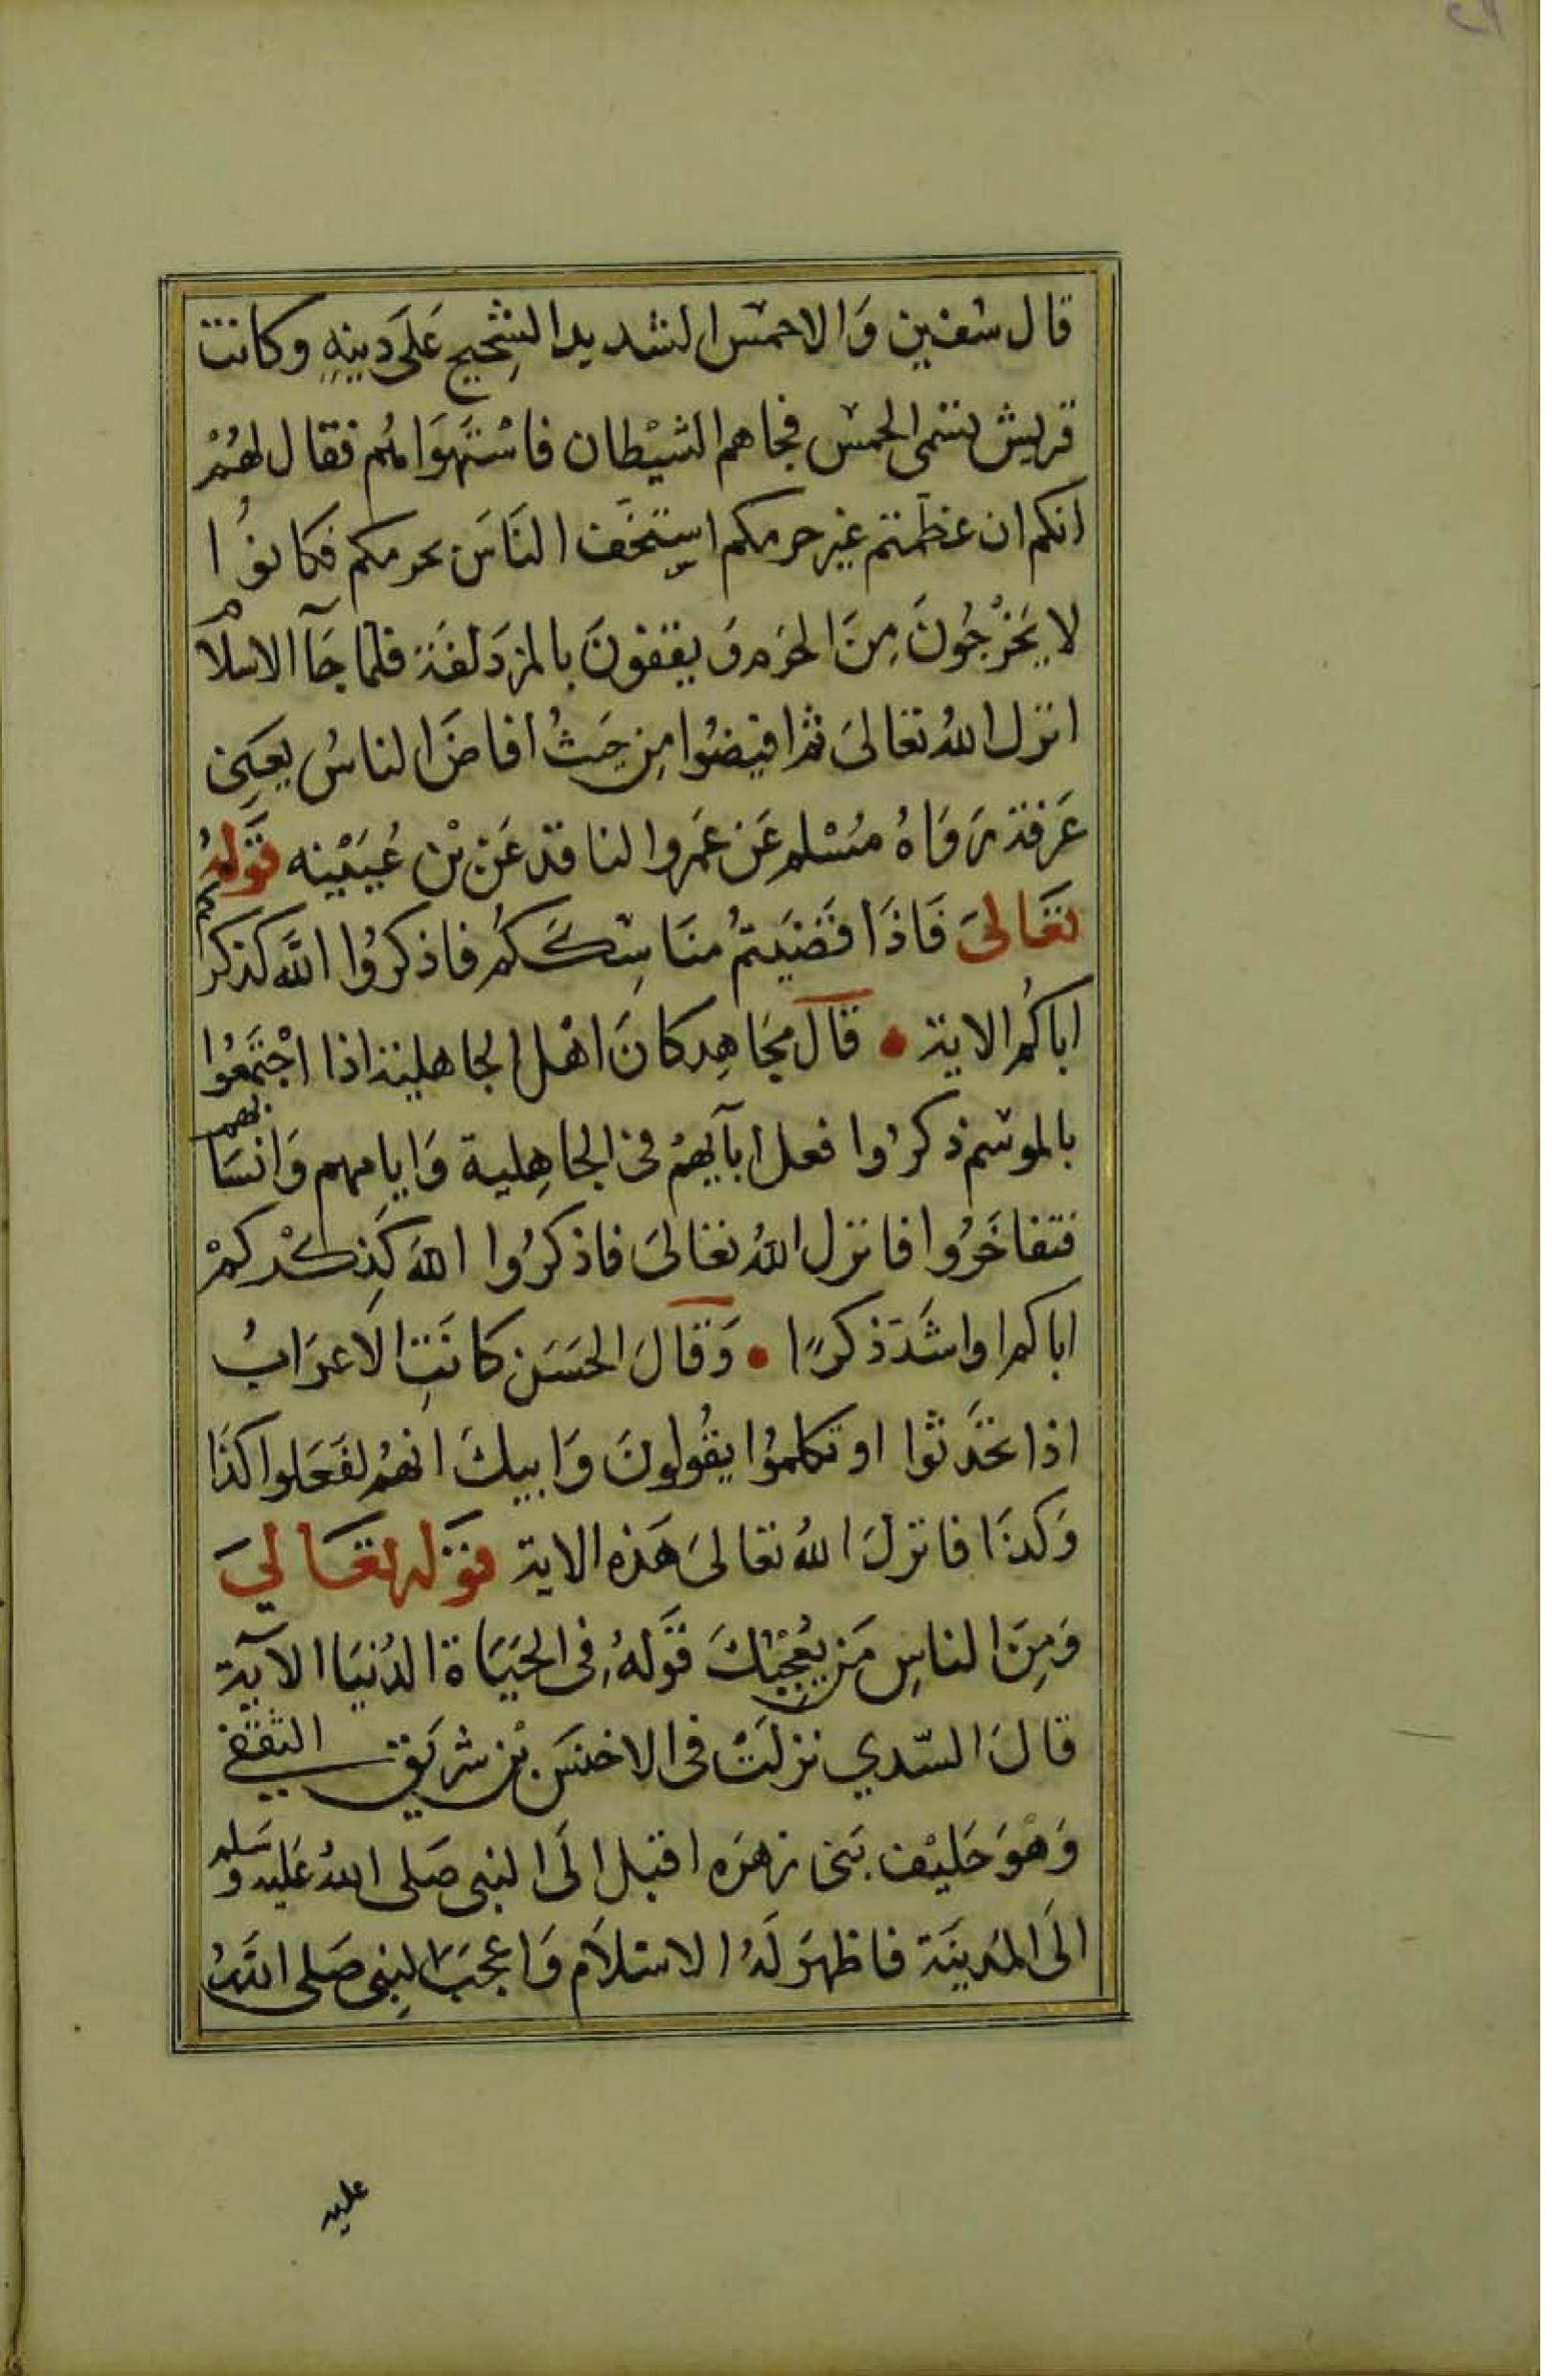 قال سفين وَالاحمس الشديد الشِّحيح عَلَى دِينِهِ وكانت
قريش تسمى الحمس فجاهم الشيْطان فاسْتَهوَاهُم فقال لهُمْ
انكم ان عظمتم غير حرمكم اسِتخَف النَاسَ بحرمكم فكانوُا
لا يَخرُجُونَ مِنَ الحَرَم وَيقفونَ بالمزدَلفَة فلما جَآ الاسلام
انزل اللهُ تعَالىَ ثم افيضوُا مِن حَيثُ افاضَ الناسُ يعَني
عَرفة رَوَاهُ مسْلم عَن عَمروا لناقد عَن بْن عُيَيْنه قَولهُ
تعَالىَ فَاذَا قضَيتُم منَاسِكَكُم فاذكرُوا اللَّه كذكركم
اباكُم الاية • قالَ مجَاهِد كانَ اهْل الجاهلية اذا اجْتَمعُوا
بالموسم ذكرُوا فعل ابآيهُم فى الجاهِلية وَايامهم وَانسَابهم
فتفاخَرُوا فانزل اللهُ تعَالىَ فاذكرُوا اللهَ كَذِكْركمْ
اباكم او اشَدَ ذكرًا • وَقالَ الحَسَن كانَتِ الاَعرَابُ
اذا تحَدثوا او تكلموُا يقُولونَ وَابيكَ انهُم لفَعَلوا كذَا
وَكذَا فانزلَ اللهُ تعَالىَ هَذه الاية قوَله تعَالىَ
وَمِنَ الناسِ مَن يُعْجِبُكَ قَولهُ فِى الحَيَاة الدُنيَا الآية
قالَ السّدي نزلَتْ فى الاخنسَ بْن شريَق الثقفي
وَهْوَ حَليْف بَنى زهرَه اقبل الَى النبى صَلى اللهُ عَليه وسَلم
الَى المدَينَة فاظهرَ لَهُ الاسْلاَم وَاعجبَ النبِى صَلى اللَّهُ
عليه